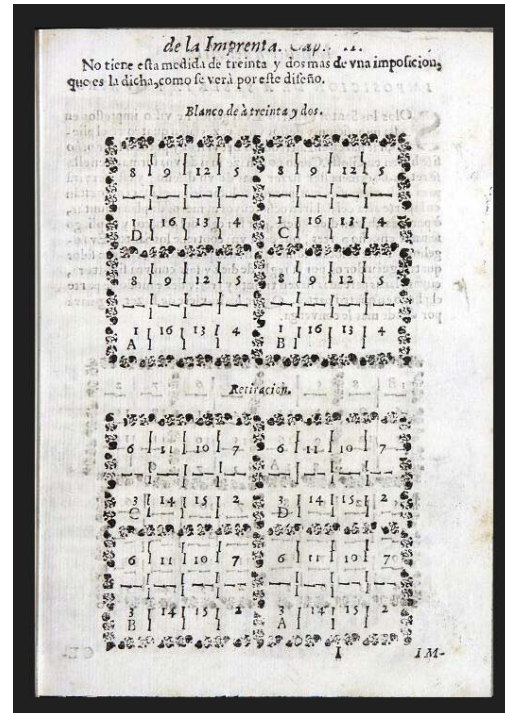 de la Imprenta. Cap.
No tiene esta medida de treinta y dos mas de vna imposicion,
que es la dicha, como se verà por este diseño.
Blanco de à treinta y dos.
8 9 12 5 8 9 12 5
1 16 13 4 1 16 13 4
D C
8 9 12 5 8 9 12 5
1 16 13 4 1 16 13 4
A B
Retiracion.
6 11 10 7 6 11 10 7
3 14 15 2 3 14 15 2
C D
6 11 10 7 6 11 10 7
3 14 15 2 3 14 15 2
B A
I IM-